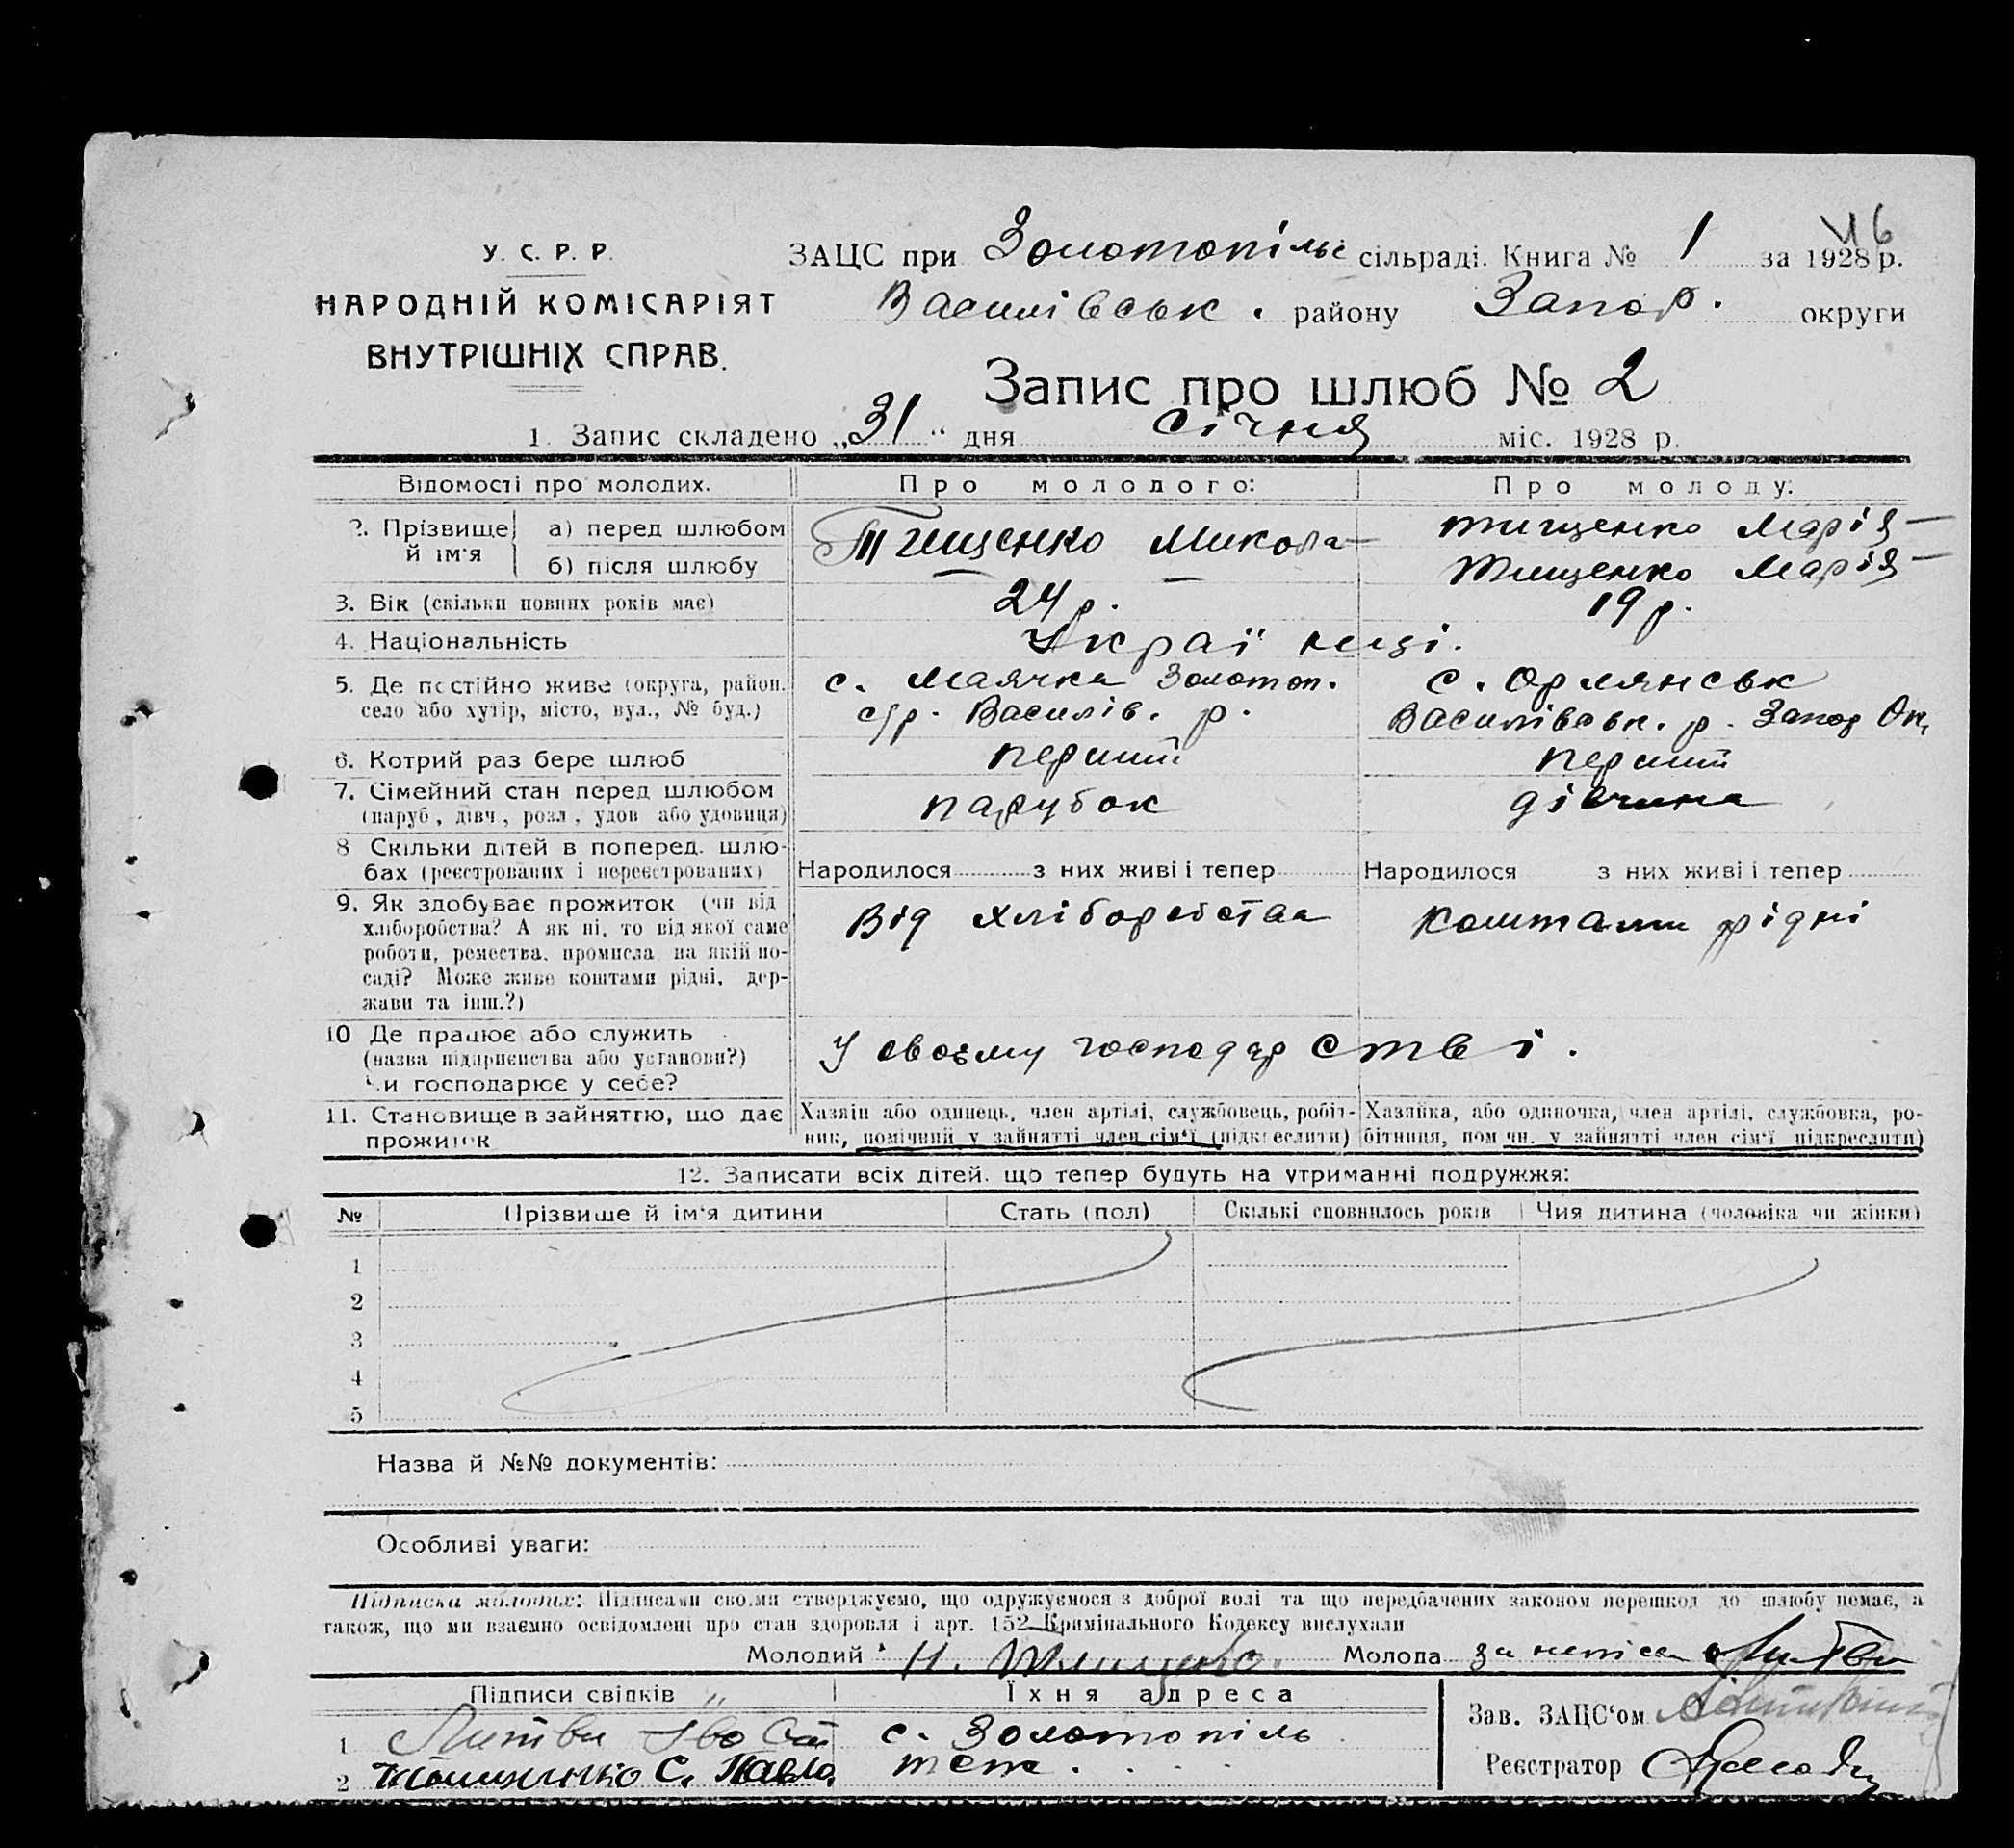 46
У. С. Р. Р.
НАРОДНІЙ КОМІСАРІЯТ
ВНУТРІШНІХ СПРАВ.
ЗАЦС при Золотопільс сільраді. Книга № 1 за 1928 р.
Василівськ. району Запор. округи
Запис про шлюб № 2
1. Запис складено „31“ дня січня міс. 1928 р.
Відомості про молодих. Про молодого: Про молоду:
2. Прізвище й ім'я
а) перед шлюбом Тищенко Микола тищенко Марія
б) після шлюбу Тищенко Марія
3. Вік (скільки повних років має) 24 р. 19 р.
4. Національність Украї нці.
5. Де постійно живе (округа, район, с. Маячка Золотоп. с. Орлянськ
село або хутір, місто, вул., № буд.) с/р. Василів. р. Василівськ. р. Запор Ок,
6. Котрий раз бере шлюб перший перший
7. Сімейний стан перед шлюбом парубок дівчина
(паруб., дівч., розл., удов або удовиця)
8 Скільки дітей в поперед. шлю-
бах (реєстрованих і нереєстрованих) Народилося з них живі і тепер Народилося з них живі і тепер
9. Як здобуває прожиток (чи від Від хліборобства коштами рідні
хліборобства? А як ні, то від якої саме
роботи, ремества, промисла на якій по-
саді? Може живе коштами рідні, дер-
жави та інш.?)
10 Де працює або служить У своєму господар стві.
(назва підприємства або установи?)
Чи господарює у себе?
11. Становище в зайняттю, що дає Хазяїн або одинець, член артілі, службовець, робіт- Хазяйка, або одиночка, член артілі, службовка, ро-
прожиток ник, помічний у зайнятті член сім'ї (підкреслити) бітниця, помічн. у зайнятті член сім'ї підкреслити)
12. Записати всіх дітей, що тепер будуть на утриманні подружжя:
№ Прізвище й ім'я дитини Стать (пол) Скількі сповнилось років Чия дитина (чоловіка чи жінки)
1
2
3
4
5
Назва й №№ документів:
Особливі уваги:
Підписка молодих: Підписами своїми стверджуємо, що одружуємося з доброї волі та що передбачених законом перешкод до шлюбу немає, а
також, що ми взаємно освідомлені про стан здоровля і арт. 152 Кримінального Кодексу вислухали
Молодий Н. Тищенко. Молода за
Підписи свідків Їхня адреса Зав. ЗАЦС'ом
1 Литви с. Золотопіль
2 С. Павло теж Реєстратор